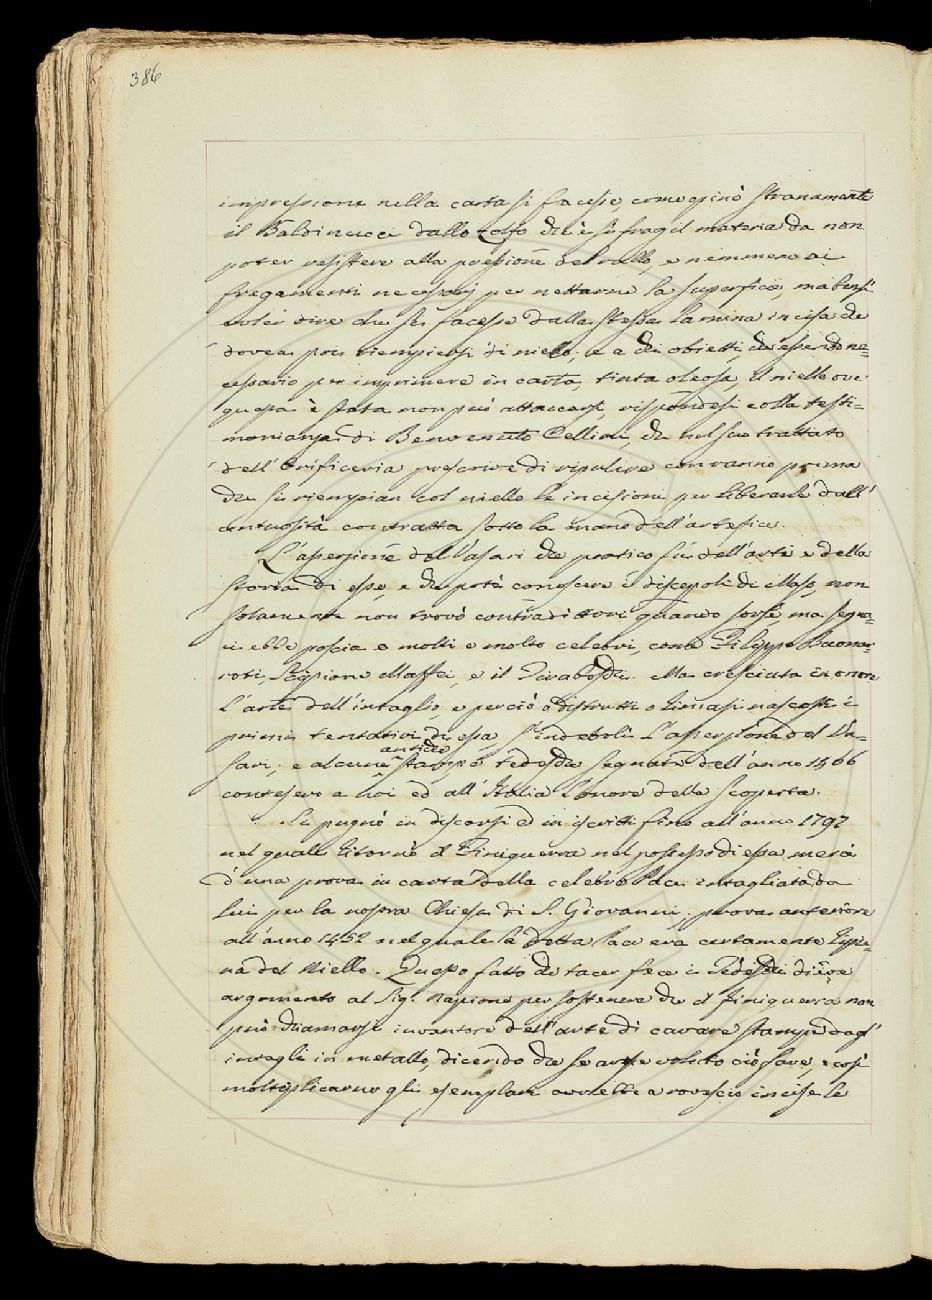 386
impressione nella carta si facesse, come opinò stranamente
il Baldinucci dallo zolfo che è sì fragil materia da non
poter resistere alla pressione del rullo, e nemmeno ai
fregamenti necessarj per nettarne la superficie, ma bensì
voler dire che si facesse dalla stessa lamina incisa che
dovea poi riempiersi di niello. e a chi obietti, che essendo ne=
cessario per imprimere in carta, tinta oleosa, il niello ove
questa è stata non può attaccarsi, rispondesi colla testi=
monianza di Benvenuto Cellini, che nel suo trattato
dell'Orificeria prescrive di ripulire con ranno prima
che si riempian col niello le incisioni per liberarle dall'
untuosità contratta sotto la mano dell'artefice.
L'asserzione del Vasari che pratico fù dell'arti e della
storia di esse, e che potè conoscere i discepoli di Maso, non
solamente non trovò contradittori quando sorse, ma segua=
ci ebbe poscia e molti e molto celebri, come Filippo Buonar=
roti, Scipione Maffei, e il Tiraboschi. Ma cresciuta in onore
L'arte dell'intaglio, e perciò o distrutti o rimasi nascosti i
primi tentativi di essa, s'indebolì L'asserzione del Va=
antiche
sari; e alcune stampe tedesche segnate dell'anno 1466
contesero a noi ed all'Italia l'onore della scoperta.
Si pugnò in discorsi ed in iscritti fino all'anno 1797
nel quale ritornò il Finiguerra nel possesso di essa mercè
d'una prova in carta della celebre Pace intagliata da
lui per la nostra Chiesa di S. Giovanni; prova anteriore
all'anno 1452 nel quale la detta Pace era certamente ripie=
na del Niello. Questo fatto che tacer fece i Tedeschi diede
argomento al Sig. Napione per sostenere che il Finiguerra non
può chiamarsi inventore dell'arte di cavare stampe dagl'
intagli in metallo, dicendo che se avesse voluto ciò fare, e così
moltiplicarne gli esemplari avrebbe a rovescio incise le